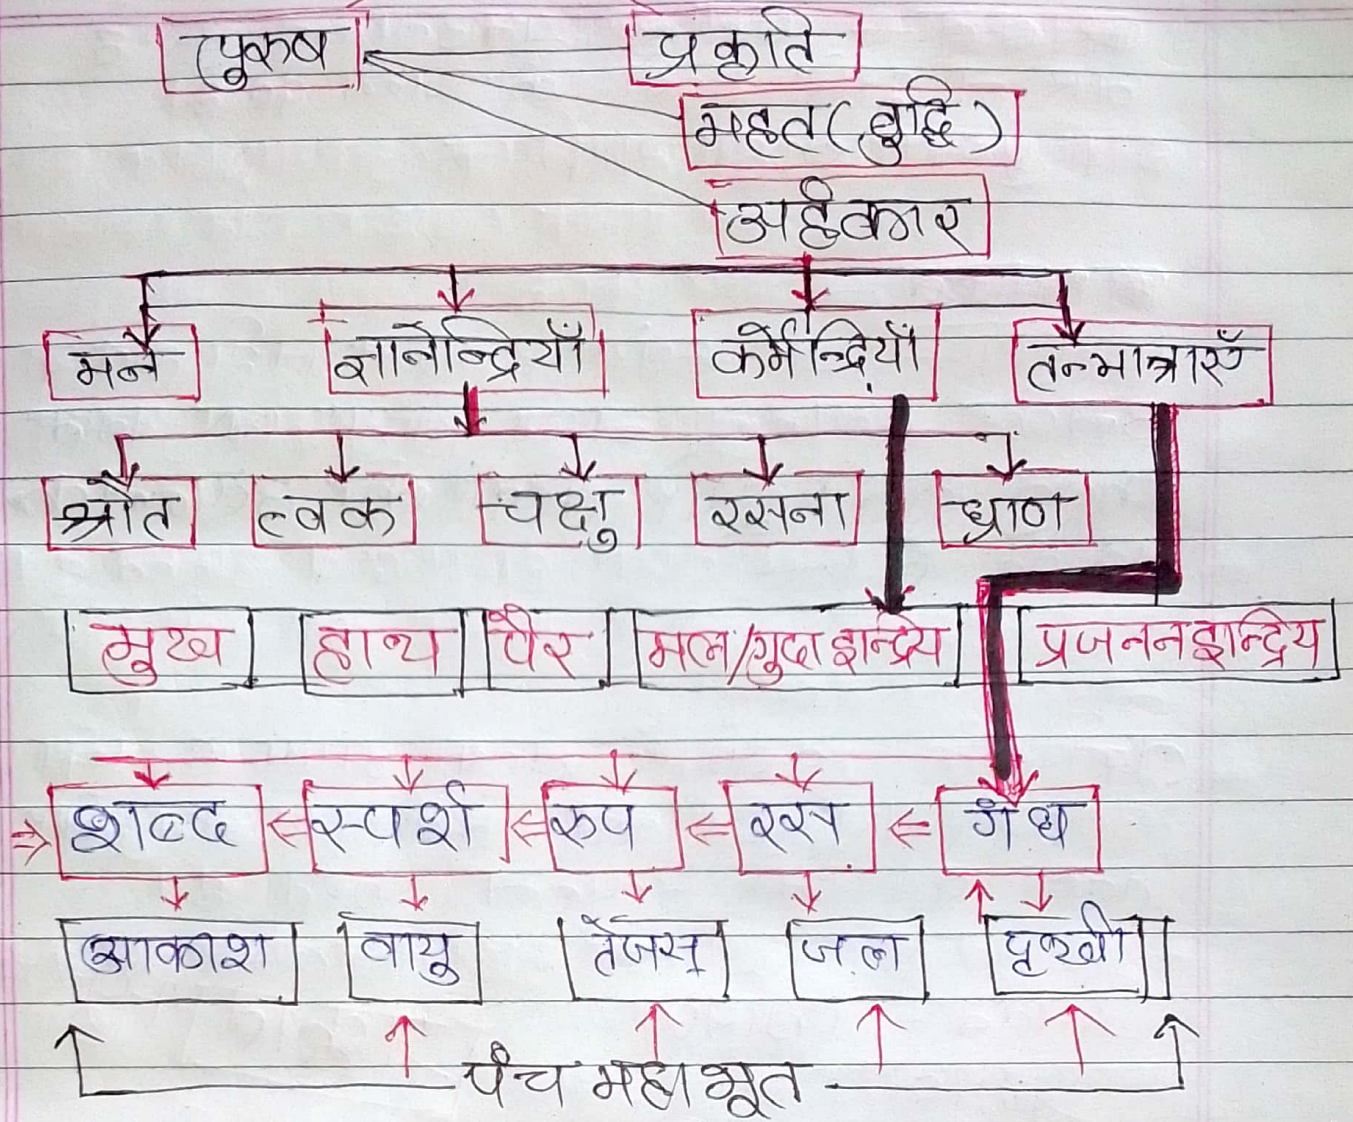 पुरुष प्रकृति
महत (बुद्धि)
अहंकार
मन ज्ञानेन्द्रियाँ कर्मेन्द्रियाँ तन्मात्राएँ
श्रोत त्वक चक्षु रसना घ्राण
मुख हाथ पैर मल/गुदा इन्द्रिय प्रजनन इन्द्रिय
शब्द स्पर्श रुप रस गंध
आकाश वायु तेजस् जल पृथ्वी
पंच महाभूत